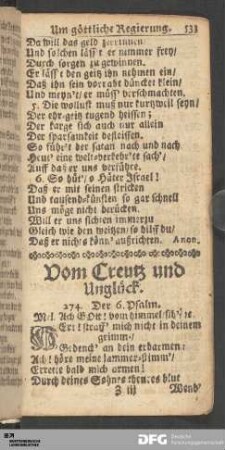 Um göttliche Regierung. 531
Da will das geld
Und solchen läss't er nimmer frey/
Durch sorgen zu gewinnen.
Er läss't den geitz ihn nehmen ein/
Daß ihn sein vorraht düncket klein/
Und meyn't/ er müss' verschmachten.
5. Die wollust muß nur kurtzweil seyn/
Der ehr-geitz tugend heissen;
Der karge sich auch nur allein
Der sparsamkeit befleissen.
So führ't der satan nach und nach
Heut' eine welt-verkehr'te sach'/
Auff daß er uns verführe.
6. So hüt'/ o Hüter Israel!
Daß er mit seinen stricken
Und tausendkünsten so gar schnell
Uns möge nicht berücken.
Will er uns sichten immerzu
Gleich wie den weitzen/ so hilff du/
Daß er nichts könn' außrichten. Anon.
Vom Creutz und
Unglück.
274. Der 6. Psalm.
Mel. Ach GOtt vom himmel sih' ꝛc.
HErr! straff' mich nicht in deinem
grimm/
Gedenck' an dein erbarmen:
Ach! höre meine jammer-stimm'/
Errette bald mich armen!
Durch deines Sohnes theures blut
Z iij Wend'
DFG Deutsche
Forschungsgemeinschaft